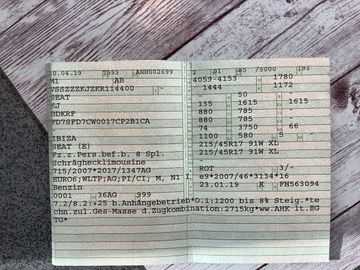 10.04.19 7593 ANH002699 2 01 5 /5000 193
M1 AB 4059-4153 1780
VSSZZZKJZKR114400 1444 1172
SEAT 50
KJ 135 1615 1615
BDKRF 880 880
FD7SFD7CW0017CP2B1CA 880 880
74 3750 66
IBIZA 1100 580 5
SEAT (E) 215/45R17 91W XL
Fz.z.Pers.bef.b. 8 Spl. 215/45R17 91W XL
Schräghecklimousine
715/2007*2017/1347AG ROT 3/-
EURO6;WLTP;AG;PI/CI; M, N1 I e9*2007/46*3134*16
Benzin 23.01.19 K FH563094
0001 36AG 999
7.2/8.2:+25 b.Anhängebetrieb*O.1:1200 bis 8% Steig.*te
chn.zul.Ges-Masse d.Zugkombination:2715kg*ww.AHK lt.EG
TG*